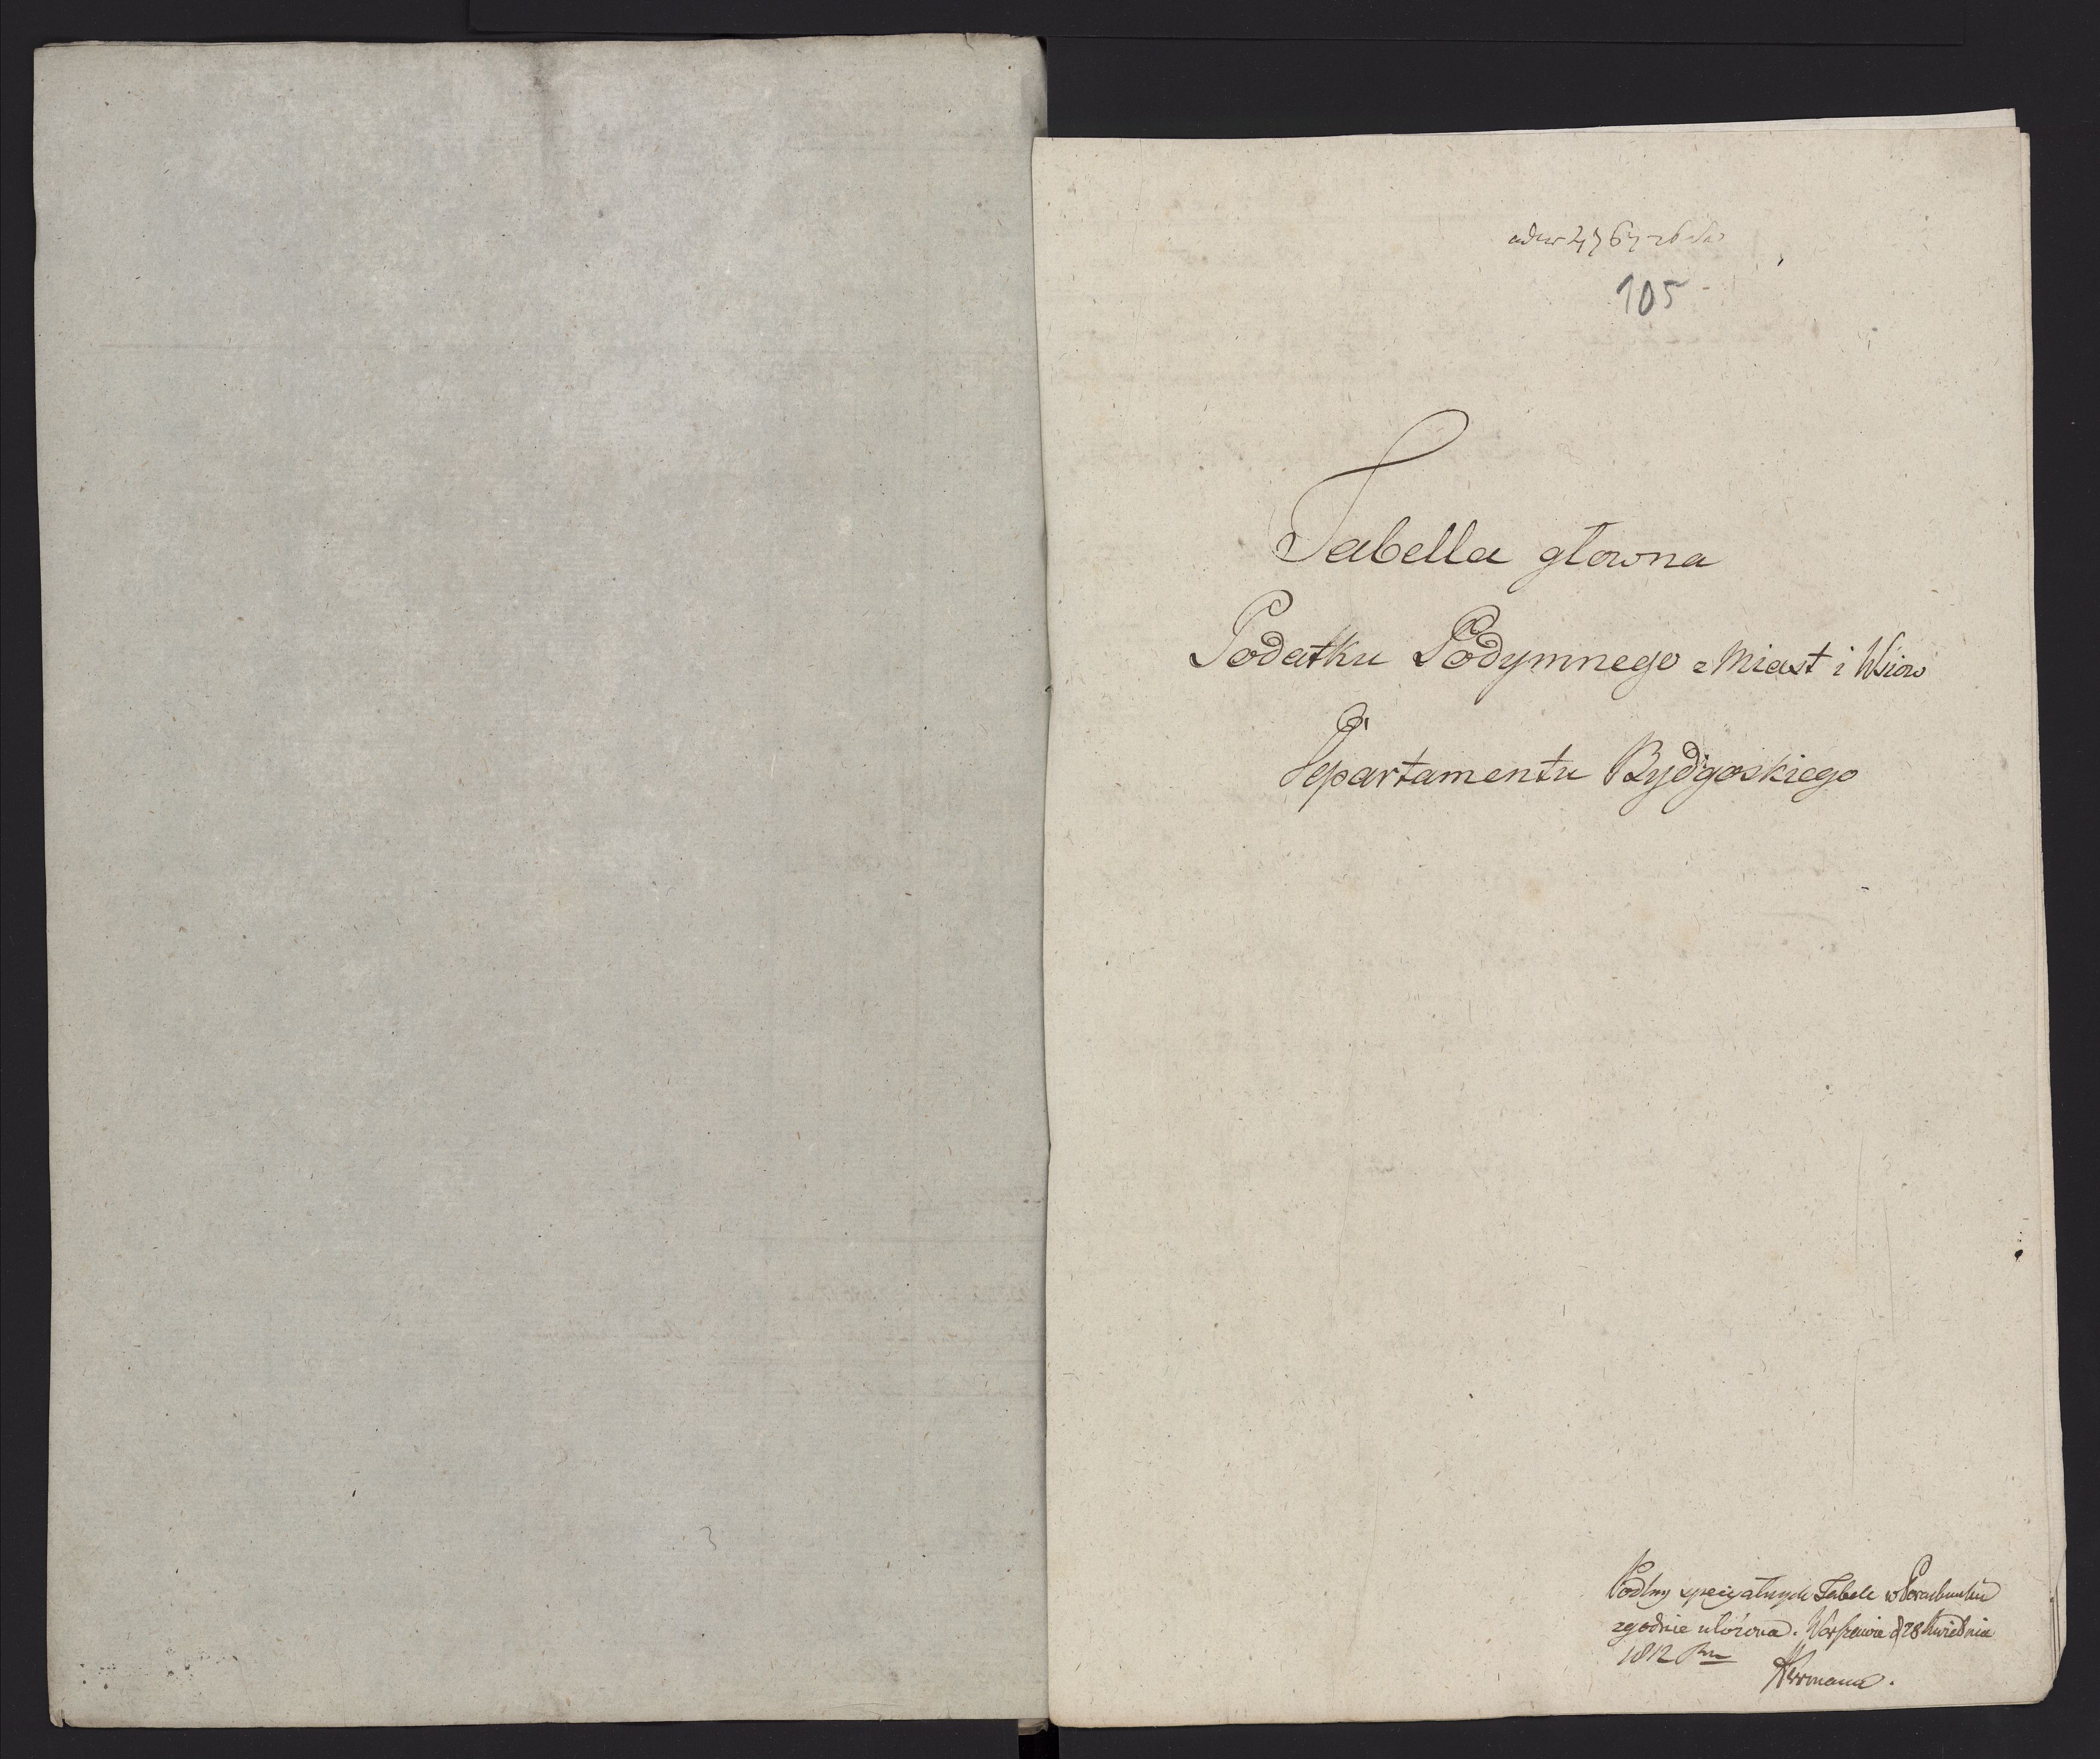 105
Tabella głowna
Podatku Podymnego z Miast i Wsiow
Departamentu Bydgoskiego
Podług specyalnych Tabell w Porachunku
zgodnie ułożona. Warszawa d 28 Kwietnia
1812 Ru
Herrmann.